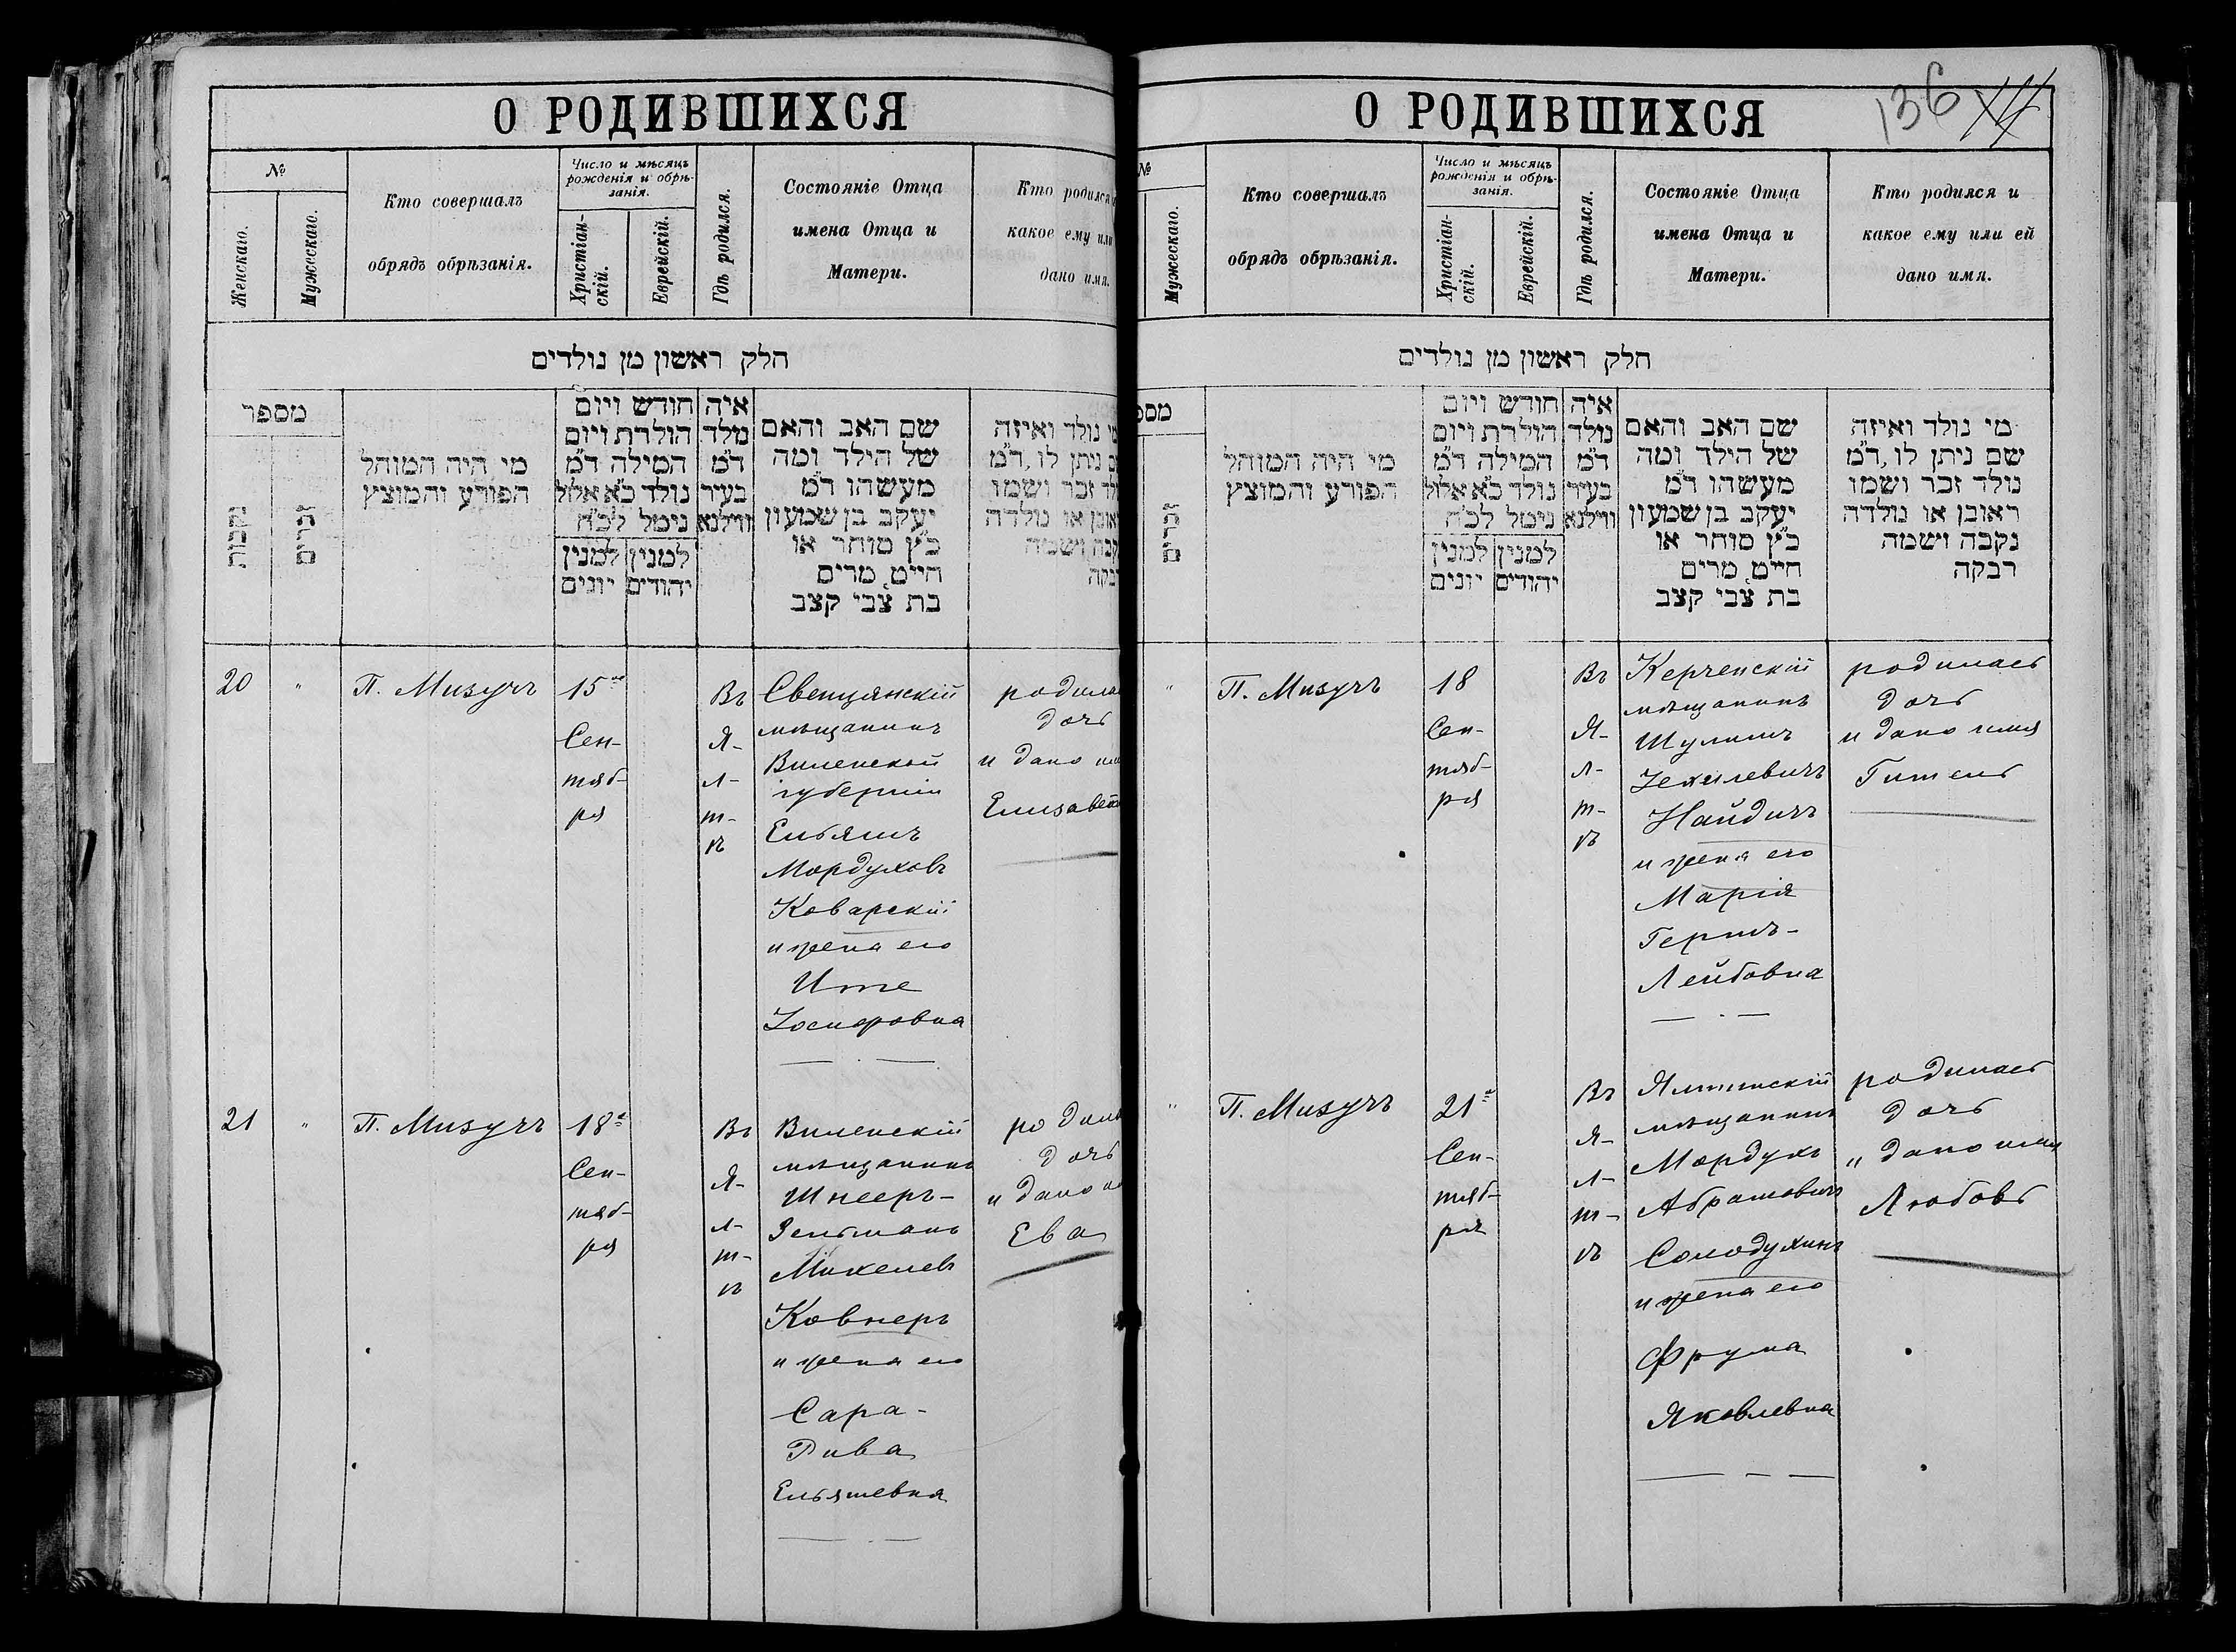 О РОДИВШИХСЯ
№
Женскаго.
Мужескаго.
Кто совершалъ
обрядъ обрѣзанія.
Число и мѣсяцъ
рожденія и обрѣ-
занія.
Христіан-
скій.
Еврейскій.
Гдѣ родился.
Состояніе Отца
имена Отца и
Матери.
Кто родился
какое ему или
дано имя.
חלק ראשון מן נולדים
מספר
נקבות
זכרים
מי היה המוהל
הפורע והמוצץ
חודש ויום
הולדת ויום
המילה ד״מ
נולד כ״א אלול
נימל לכ״ח
למנין למנין
יהודים יונים
איה
נולד
ד״מ
בעיר
ווילנא
שם האב והאם
של הילד ומה
מעשהו ד״מ
יעקב בן שמעון
כ״ץ סוחר או
חייט, מרים
בת צבי קצב
נולד ואיזה
ניתן לו, ד״מ
זכר ושמו
או נולדה
ושמה
20
"
П. Мизучъ
15го
Сен-
тяб-
ря
Въ
Я-
л-
т-
ѣ
Свенцянскій
мѣщанинъ
Виленской
губерніи
Ельяшъ
Мордуховъ
Коварскій
и жена его
Ите
Іосифовна
дочь
и дано
21
"
П. Мизучъ
18го
Сен-
тяб-
ря
Въ
Я-
л-
т-
ѣ
Виленскій
мѣщанинъ
Шнееръ-
Зельманъ
Михелев
Ковнеръ
и жена его
Сара-
Рива
Ельяшевна
дочь
и дано
Ева
О РОДИВШИХСЯ
136
№
Мужескаго.
Кто совершалъ
обрядъ обрѣзанія.
Число и мѣсяцъ
рожденія и обрѣ-
занія.
Христіан-
скій.
Еврейскій.
Гдѣ родился.
Состояніе Отца
имена Отца и
Матери.
Кто родился и
какое ему или ей
дано имя.
חלק ראשון מן נולדים
זכרים
מי היה המוהל
הפורע והמוצץ
חודש ויום
הולדת ויום
המילה ד״מ
נולד כ״א אלול
נימל לכ״ח
למנין למנין
יהודים יונים
איה
נולד
ד״מ
בעיר
ווילנא
שם האב והאם
של הילד ומה
מעשהו ד״מ
יעקב בן שמעון
כ״ץ סוחר או
חייט, מרים
בת צבי קצב
מי נולד ואיזה
שם ניתן לו, ד״מ
נולד זכר ושמו
ראובן או נולדה
נקבה ושמה
רבקה
"
П. Мизучъ
18
Сен-
тяб-
ря
Въ
Я-
л-
т-
ѣ
Керченскій
мѣщанинъ
Шулимъ
Найдичъ
и жена его
Марія
Гершъ-
Лейбовна
родилась
дочь
и дано имя
Гитель
"
П. Мизучъ
21го
Сен-
тяб-
ря
Въ
Я-
л-
т-
ѣ
Ялтинскій
мѣщанинъ
Мордухъ
Абрамовичъ
Солодухинъ
и жена его
Фрума
Яковлевна
родилась
дочь
и дано имя
Любовь